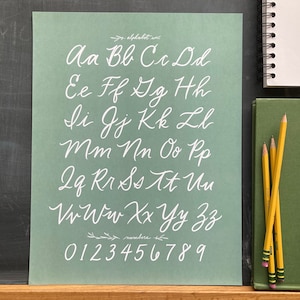 Aa Bb Cc Dd
Ee Ff Gg Hh
Ii Jj Kk Ll
Mm Nn Oo Pp
Qq Rr Ss Tt Uu
Vv Ww Xx Yy Zz
0 1 2 3 4 5 6 7 8 9